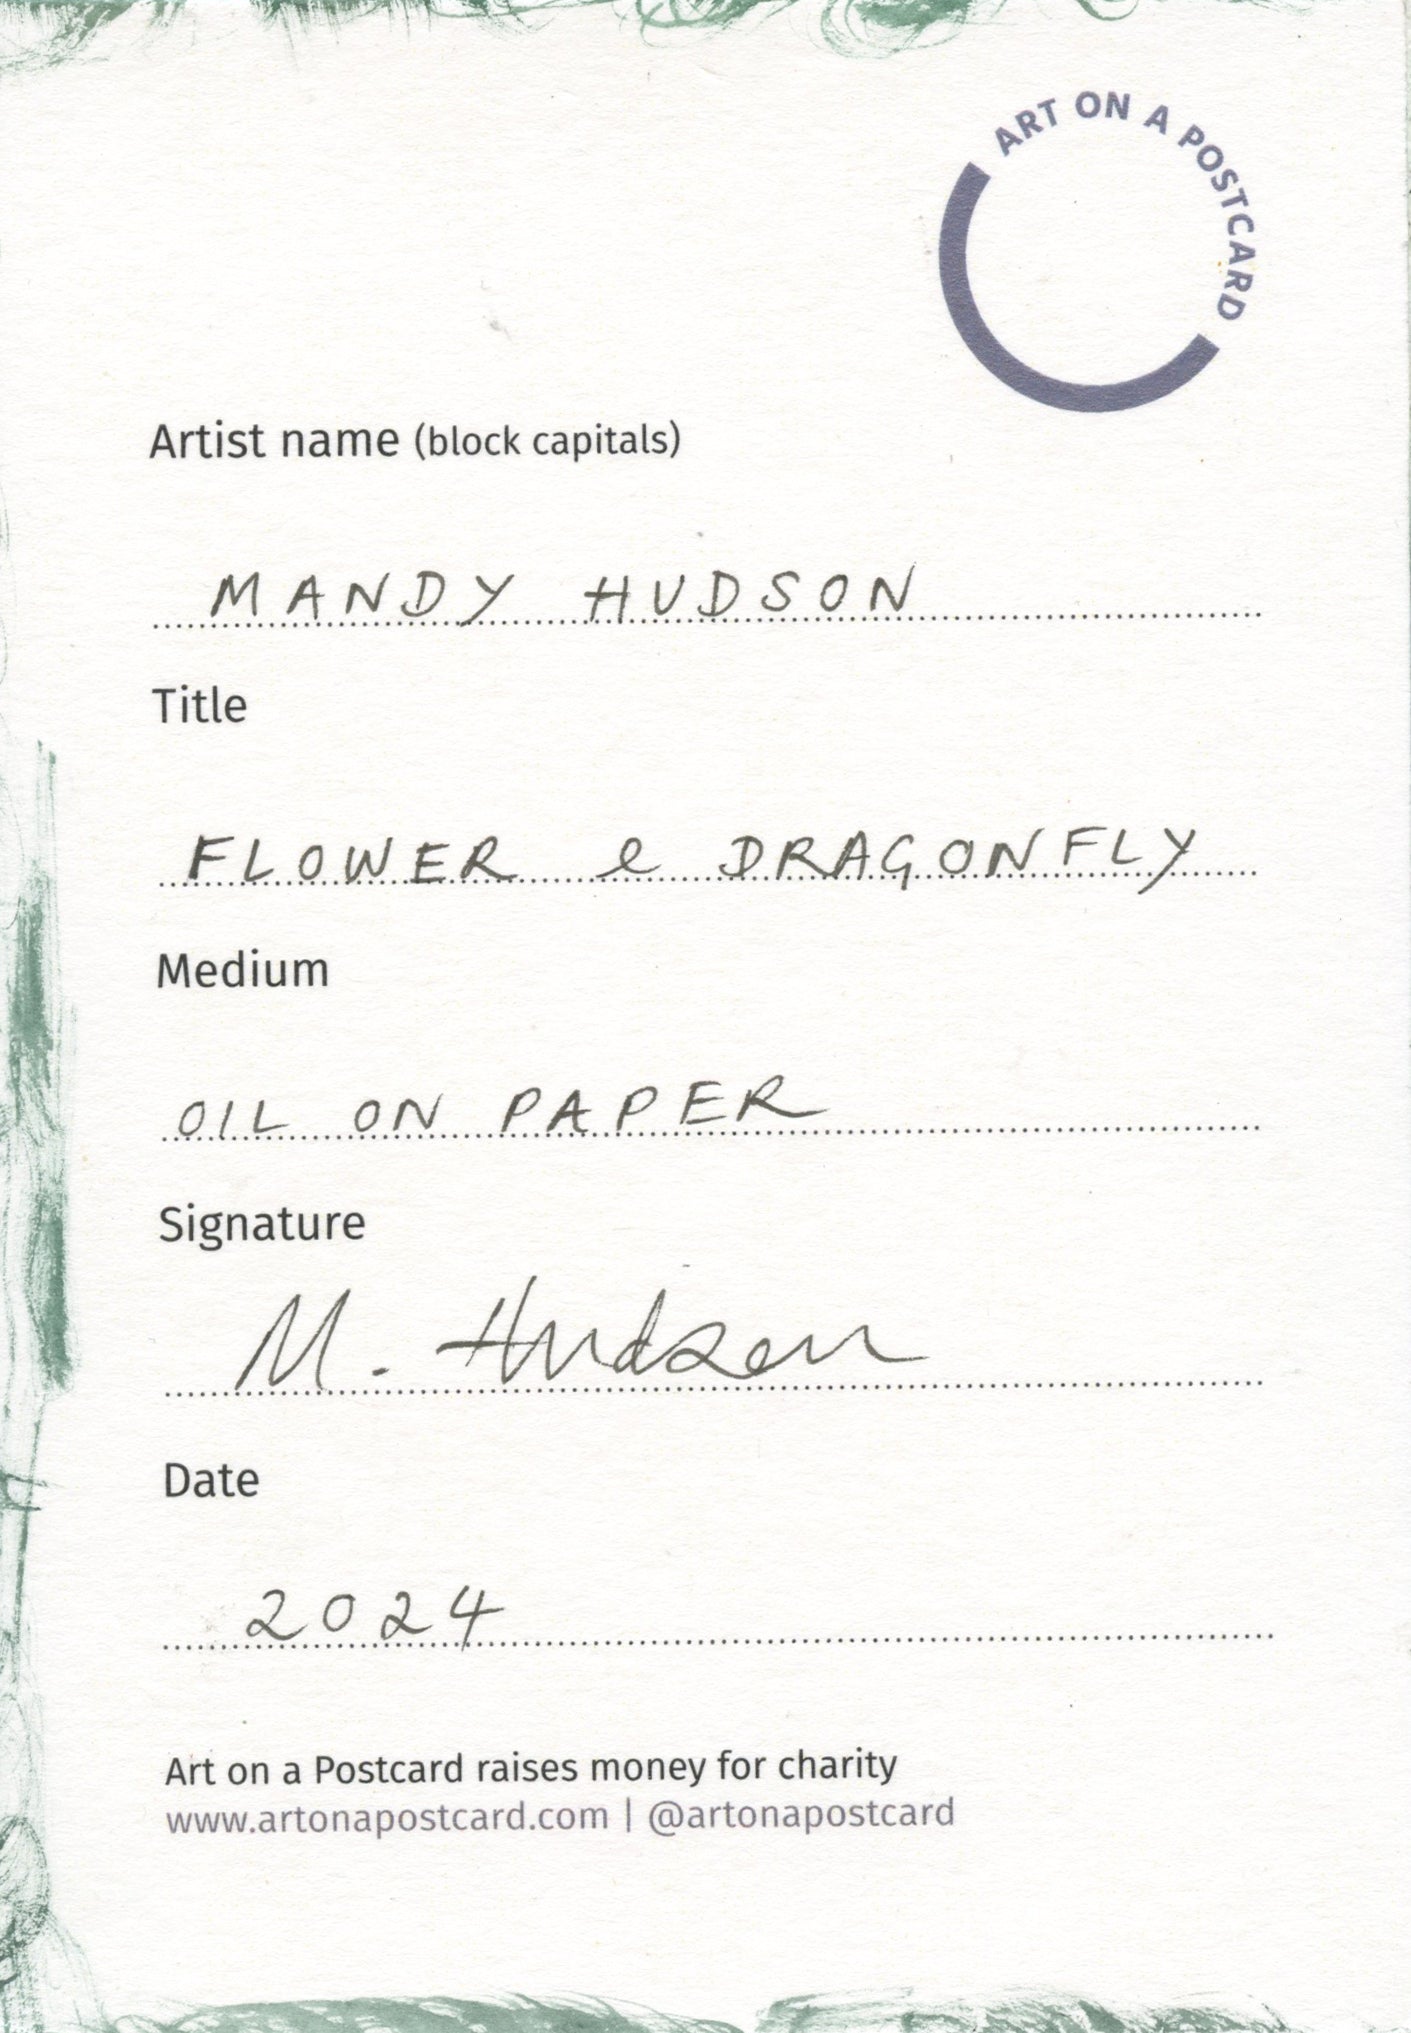 ART ON A POSTCARD
Artist name (block capitals)
MANDY HUDSON
Title
FLOWER & DRAGONFLY
Medium
OIL ON PAPER
Signature
M. Hudson
Date
2024
Art on a Postcard raises money for charity
www.artonapostcard.com | @artonapostcard